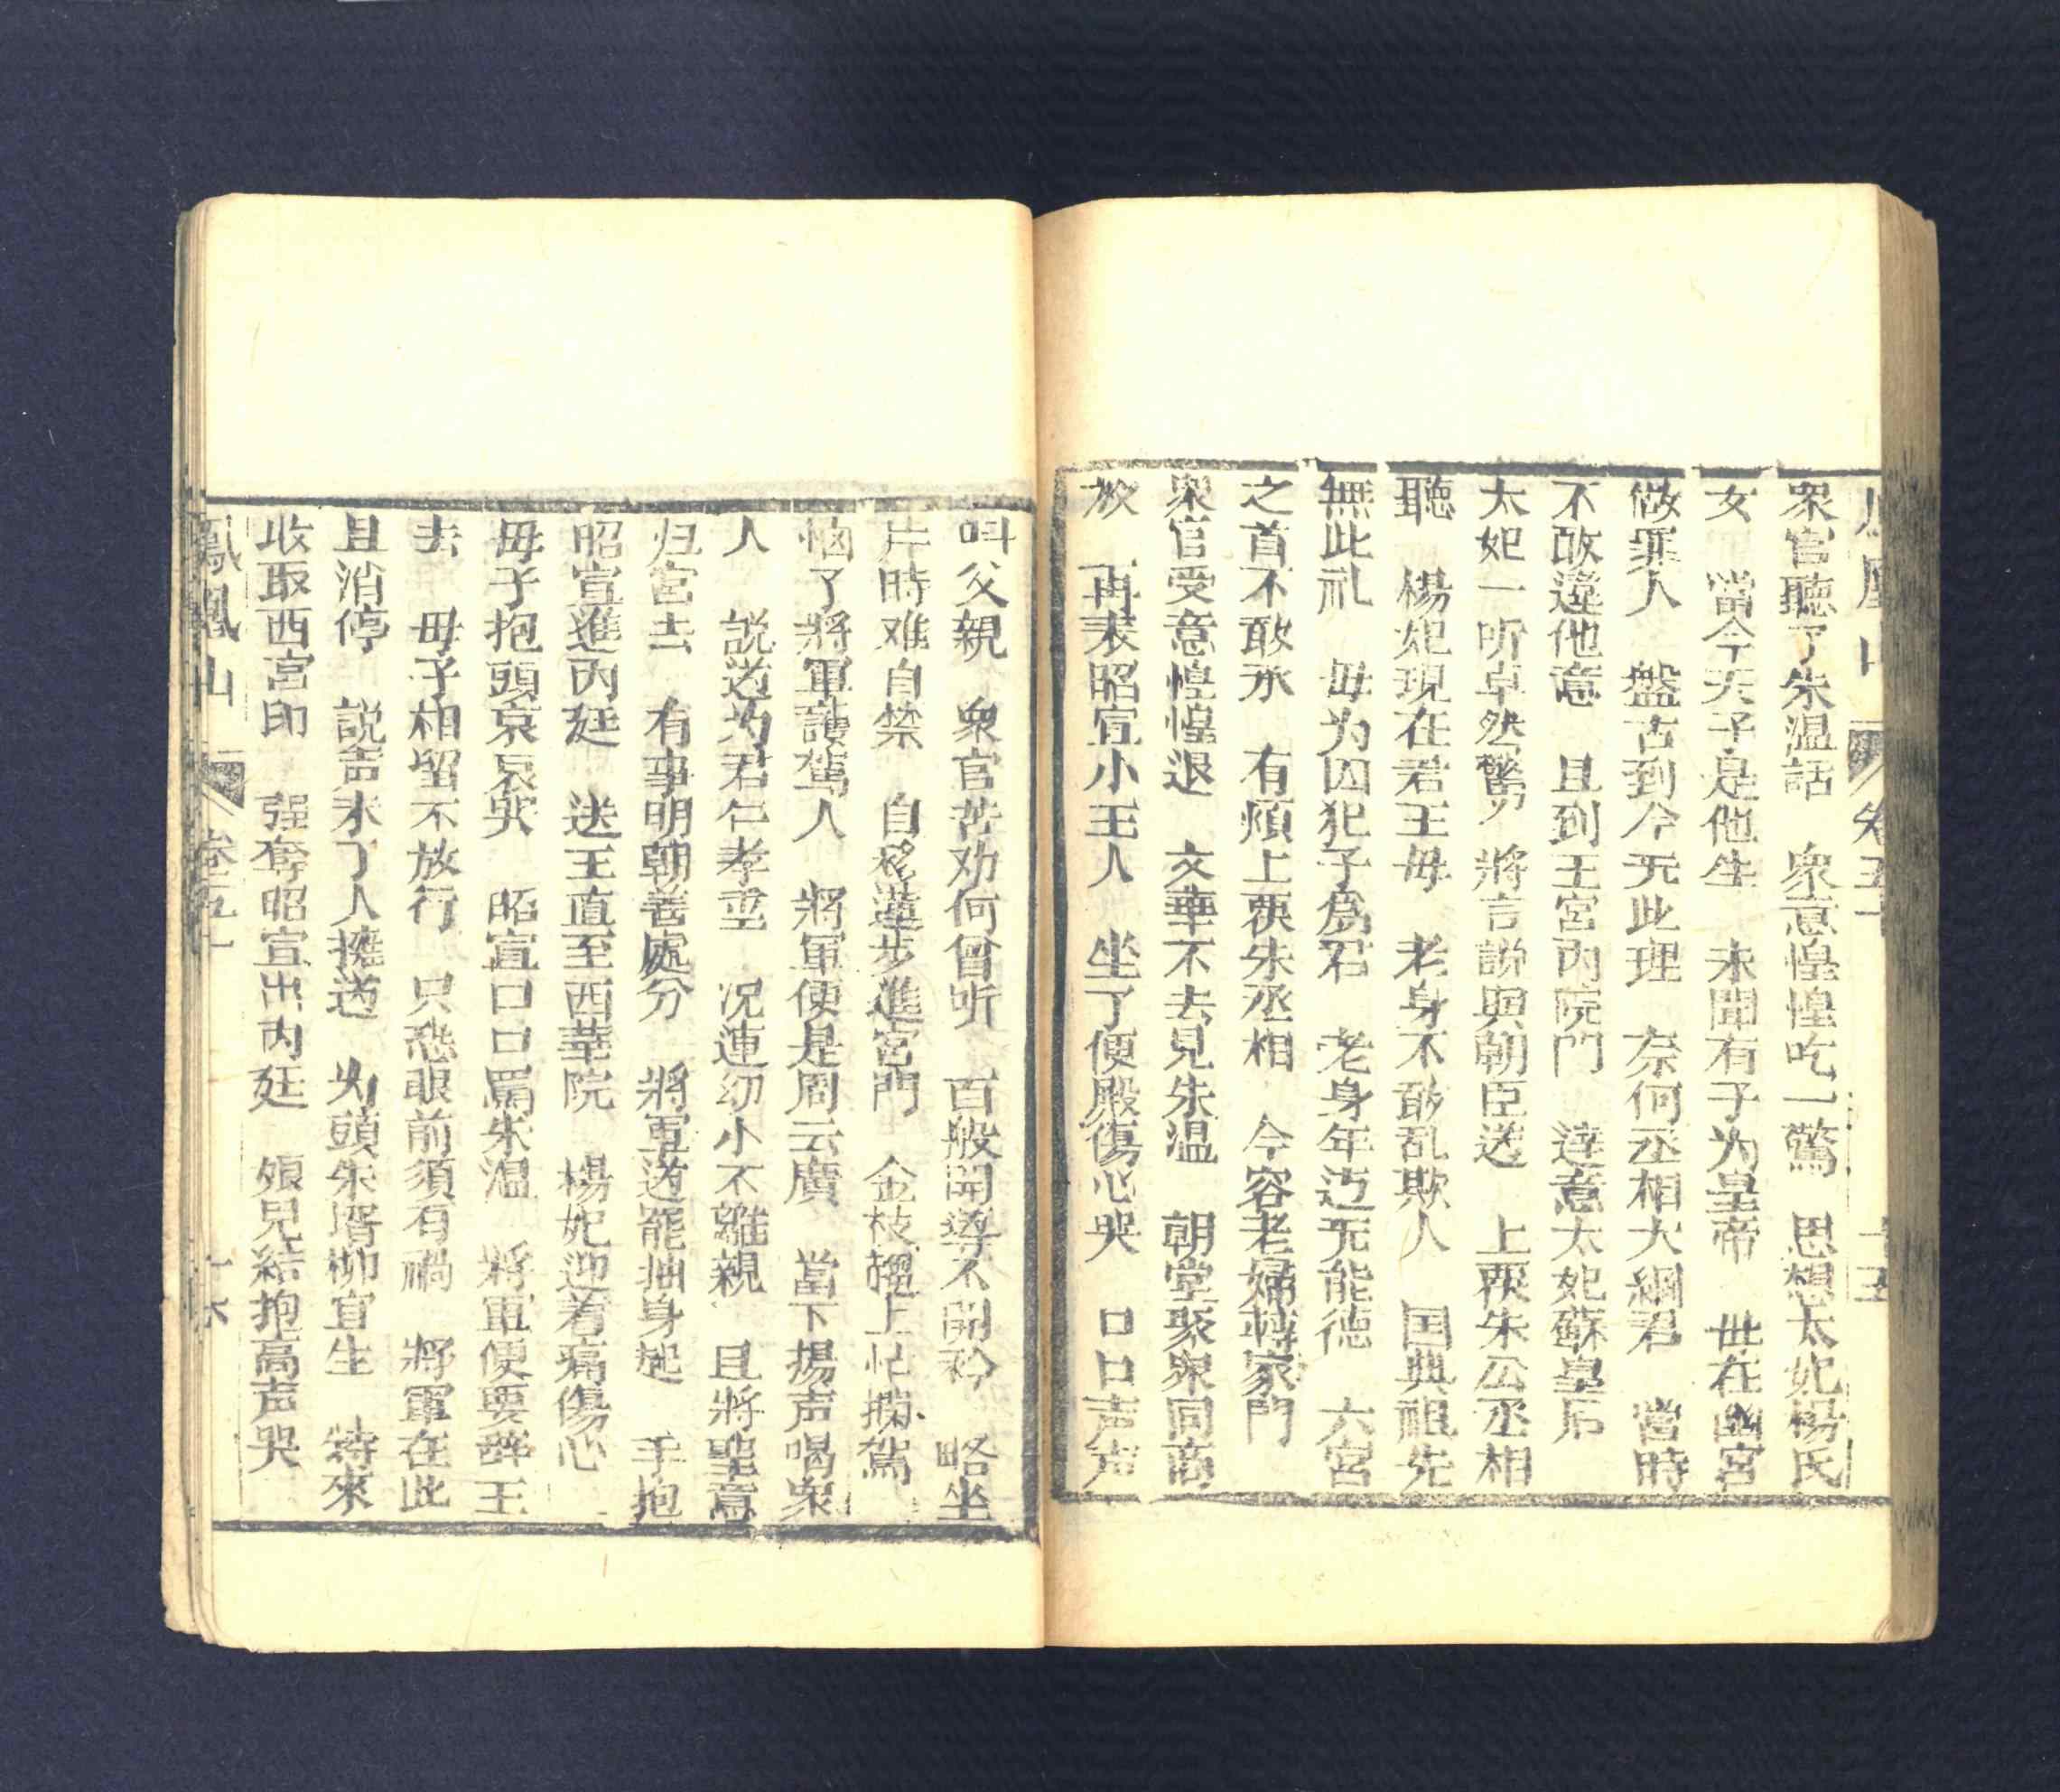 鳳凰山 卷五十 十五
衆官聽了朱温話 衆意惶惶吃一驚 思想太妃楊氏
女 當今天子是他生 未聞有子为皇帝 世在幽宮
做罪人 盤古到今无此理 奈何丞相大綱君 當時
不敢違他意 且到王宮内院門 達意太妃蘇皇后
太妃一听卓然驚 將言説與朝臣送 上覆朱公丞相
聽 楊妃現在君王毋 老身不敢乱欺人 国典祖先
無此礼 毋为囚犯子為君 老身年迈无能德 六宮
之首不敢承 有煩上覆朱丞相 今容老婦轉家門
衆官受意惶惶退 文華不去見朱温 朝堂聚衆同商
放 再表昭宣小王人 坐了便殿傷心哭 口口声声
叫父親 衆官苦劝何曾听 百般開導不開衿 略坐
片時难自禁 自移蓮步進宮門 金枝趨上忙攔駕
恼了將軍護駕人 將軍便是周云廣 當下揚声喝衆
人 説道为君仁孝重 况連幼小不離親 且將聖意
归宮去 有事明朝善處分 將軍道罷抽身起 手抱
昭宣進内廷 送王直至西華院 楊妃迎着痛傷心
毋子抱頭哀哀哭 昭宣口口罵朱温 將軍便要辭王
去 毋子相留不放行 只恐眼前須有禍 將軍在此
且消停 説声未了人擁道 为頭朱壻柳宜生 特來
收取西宮印 强奪昭宣出内廷 娘兒結抱高声哭
鳳凰山 卷五十 十六